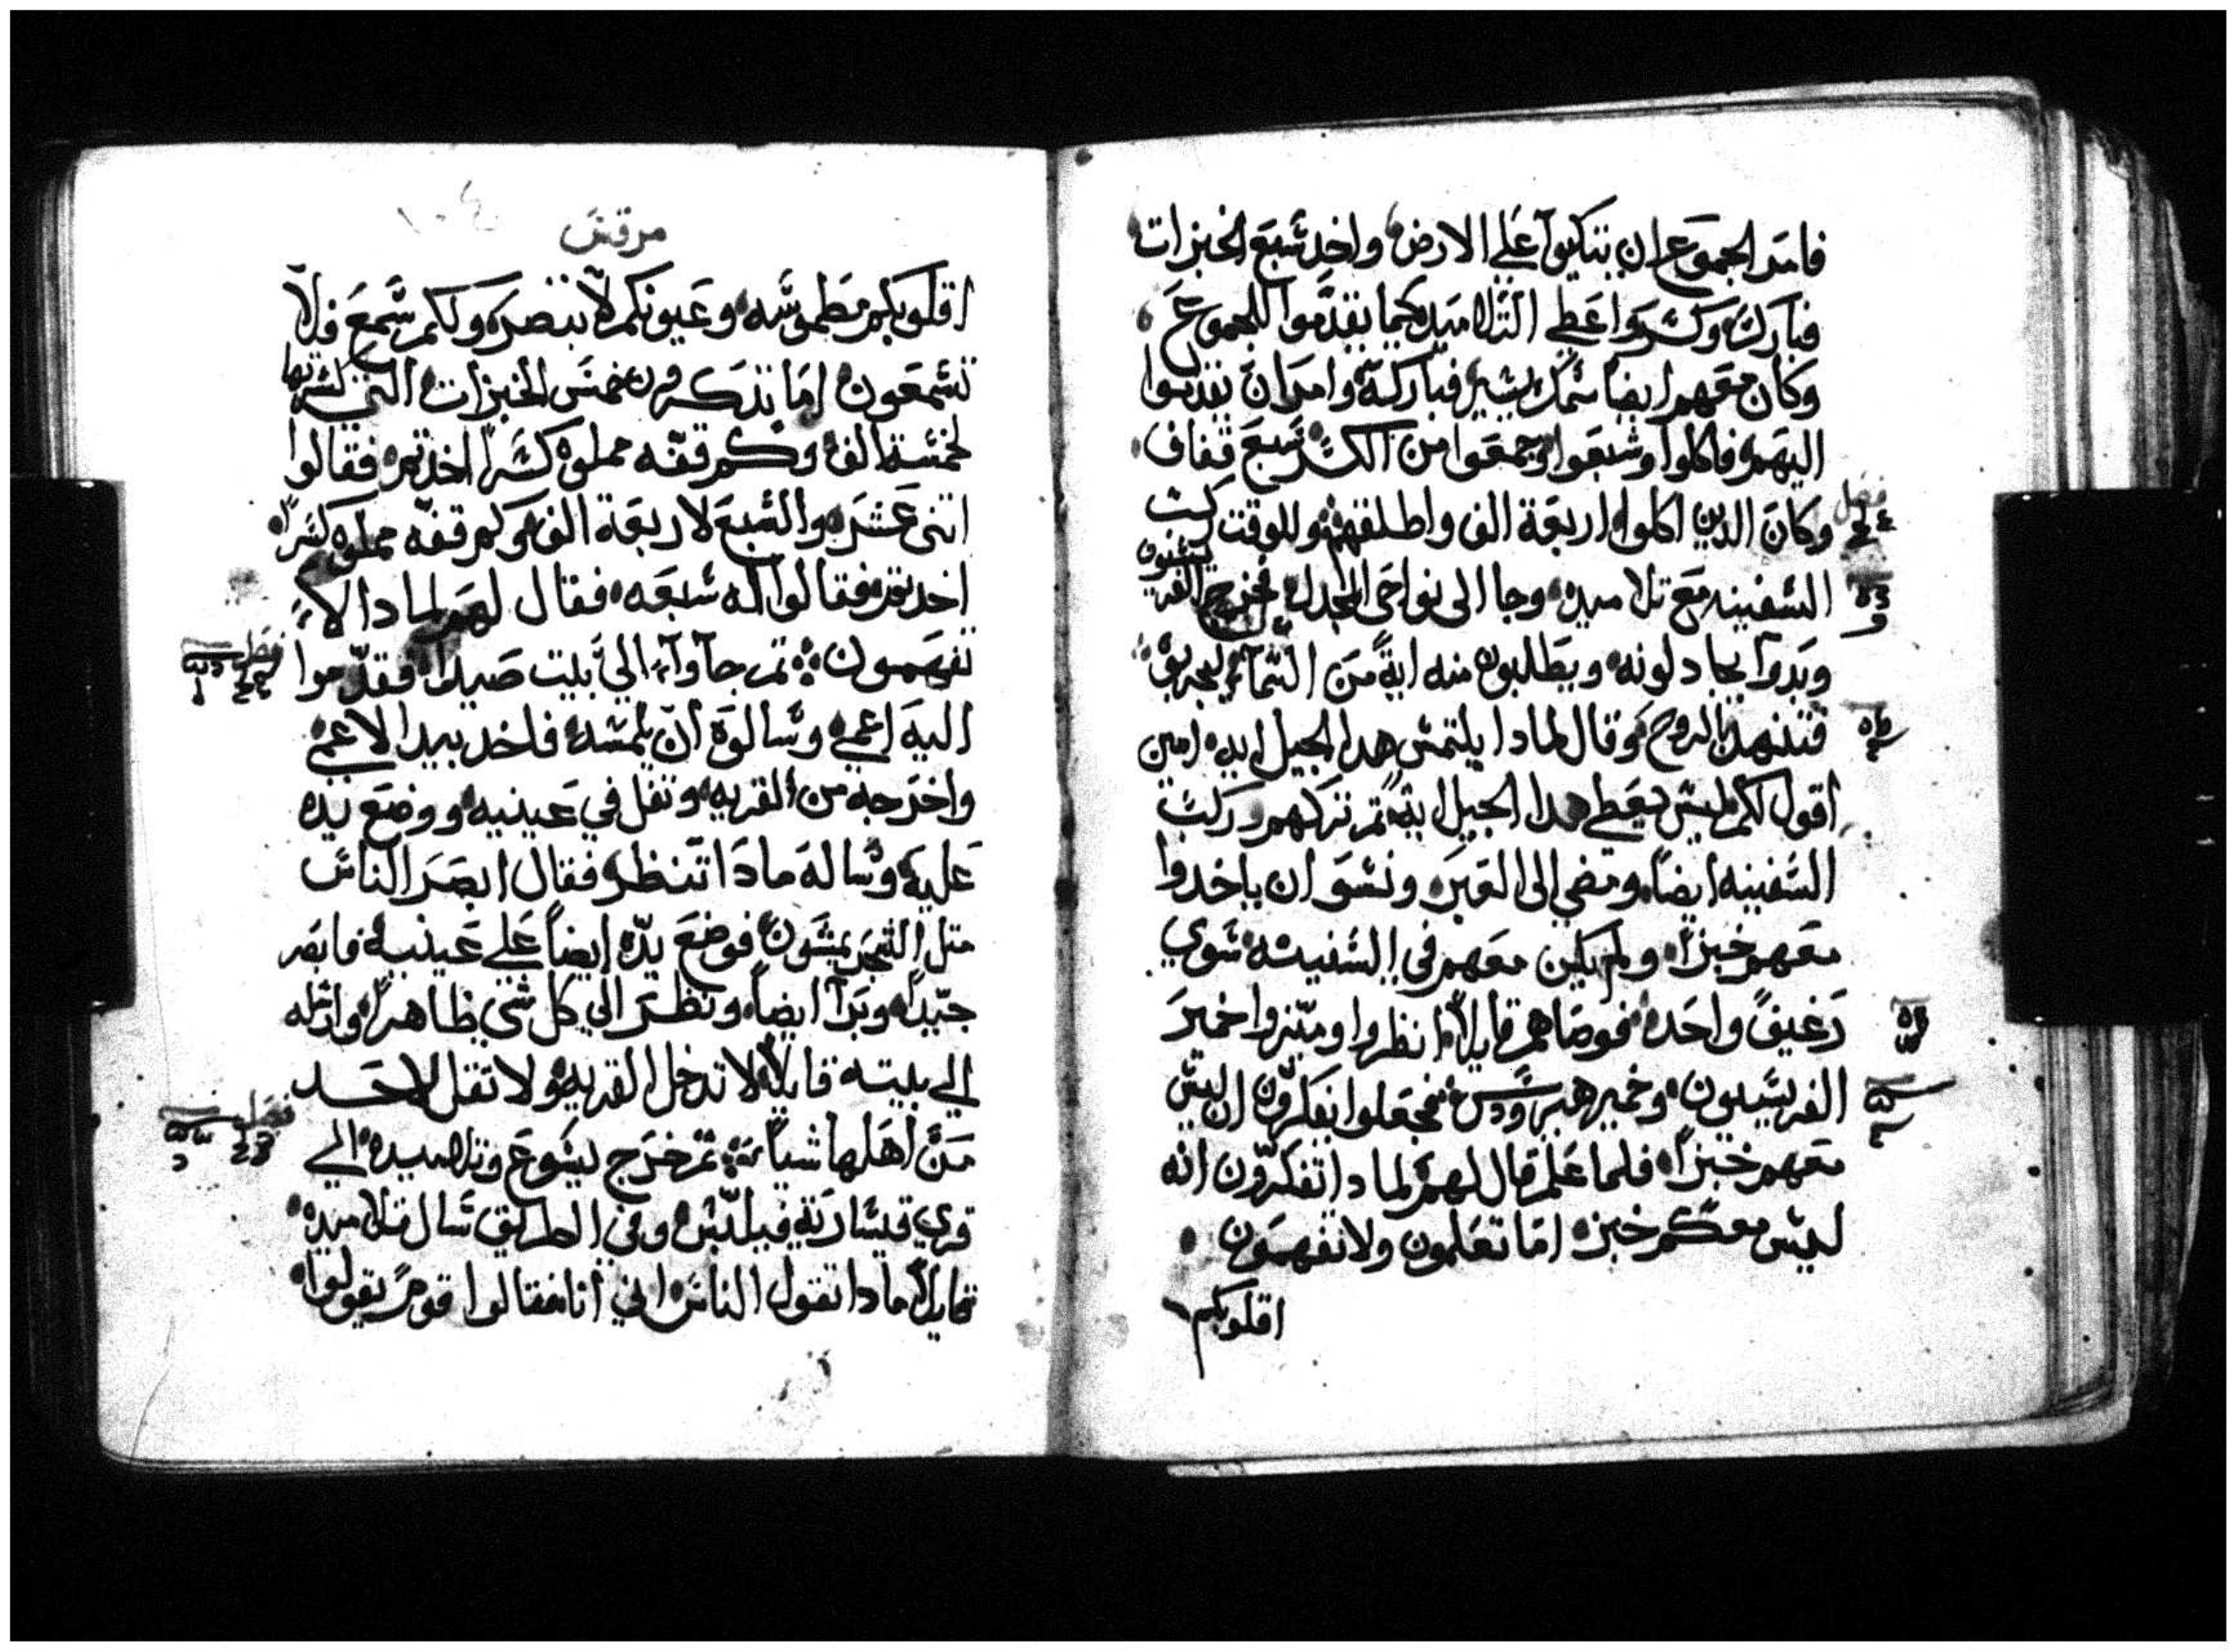 فامر الجموع ان يتكيوا علي الارض واخد شبع الخبزات
فبارك وكشر واعطي التلاميد كيما يقدموا للجموع
وكان معهم ايضا شمك يشير فباركه وامر ان يقدموا
اليهم فاكلوا وشبعوا وجمعوا من الكشر شبع قفاف
فصل وكان الدين اكلوا اربعة الف واطلقهم وللوقت ركب
الشفينه مع تلاميده وجا الى نواحى المجدل فخرج الفريشيون
وبدوا يجادلونه ويطلبون منه اية من الشماء ليجربوه
فتنهد بالروح وقال لمادا يلتمش هدا الجيل ايه امين
اقول لكم ليش يعطي هدا الجيل اية تم تركهم وركب
الشفينه ايضا ومضي الى العبر ونشوا ان ياخدوا
معهم خبزا ولم يكن معهم في الشفينه شوي
رغيف واحده فوصاهم قايلا انظروا وميزوا خمير
الفريشيون وخمير هيرودش فجعلوا يفكرون ان ليش
معهم خبزا فلما علم قال لهم لمادا تفكرون انه
ليش معكم خبز اما تعلمون ولا تفهمون
اقلوبكم
مرقش
اقلوبكم مطموشه وعيونكم لا تبصر ولكم شمع فلا
تشمعون اما تدكرون خمش الخبزات التي كشرتها
لخمشة الف وكم قفه مملوه كشرا اخدتم فقالوا
اتنى عشر والشبع لاربعة الف وكم قفه مملوه كشرا
اخدتم فقالوا له شبعه فقال لهم لمادا لا
تفهمون تم جآوا الي بيت صيدا فقدموا فصل
اليه اعمي وشالوه ان يلمشه فاخد بيد الاعمي
واخرجه من القريه وتفل في عينيه ووضع يده
عليه وشاله مادا تنظر فقال ابصر الناش
متل الشجر يمشون فوضع يده ايضا علي عينيه فابصر
جيدا وبرا ايضا ونظر الي كل شي ظاهرا وارشله
الي بيته قايلا لا تدخل القريه ولا تقل لاحد
من اهلها شيا تم خرج يشوع وتلاميده الي فصل
قري قيشارية فيلبش وفي الطريق شال تلاميده
قايلا مادا تقول الناش اني انا فقالوا قوم يقولوا